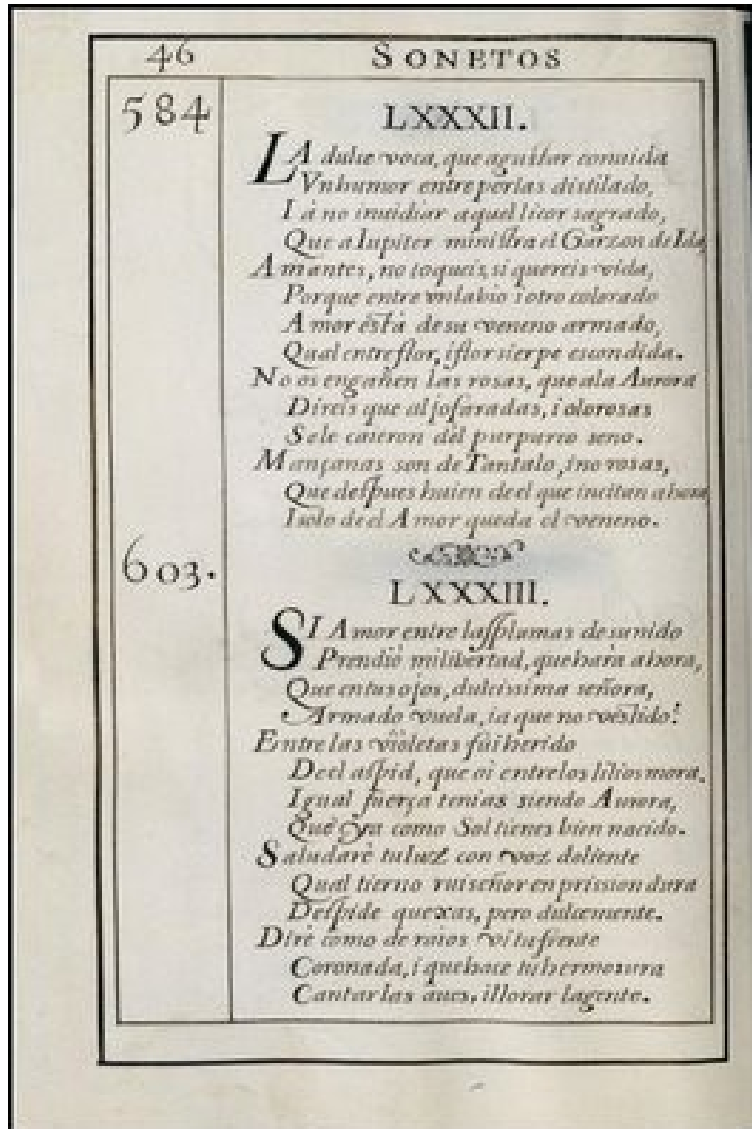 46 SONETOS
584
LXXXII.
LA dulce voca, que agustar conuida
Vn humor entre perlas distilado,
I á no inuidiar aquel licor sagrado,
Que a Iupiter ministra el Garzon de Ida,
Amantes, no toqueis, si quereis vida,
Porque entre vn labio i otro colorado
Amor está de su veneno armado,
Qual entre flor, i flor sierpe escondida.
No os engañen las rosas, que ala Aurora
Direis que aljofaradas, i olorosas
Sele caieron del purpureo seno.
Mançanas son de Tantalo, i no rosas,
Que despues huien de el que incitan ahora
I solo de el Amor queda el veneno.
603.
LXXXIII.
SI Amor entre las plumas de su nido
Prendiò mi libertad, que harà ahora,
Que en tus ojos, dulcissima señora,
Armado vuela, ia que no vestido!
Entre las violetas fui herido
De el aspid, que oi entre los lilios mora.
Igual fuerça tenias siendo Aurora,
Que ya como Sol tienes bien nacido.
Saludarè tu luz con voz doliente
Qual tierno ruiseñor en prission dura
Despide quexas, pero dulcemente.
Dirè como de raios vi tu frente
Coronada, i que hace tu hermosura
Cantar las aues, i llorar la gente.